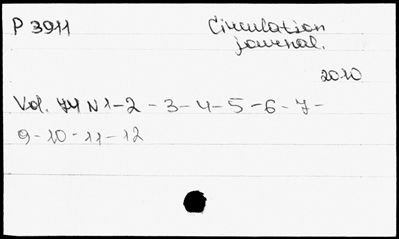 P 3911 Circulation
journal.
2010
Vol. 74 N 1-2-3-4-5-6-7-
9-10-11-12